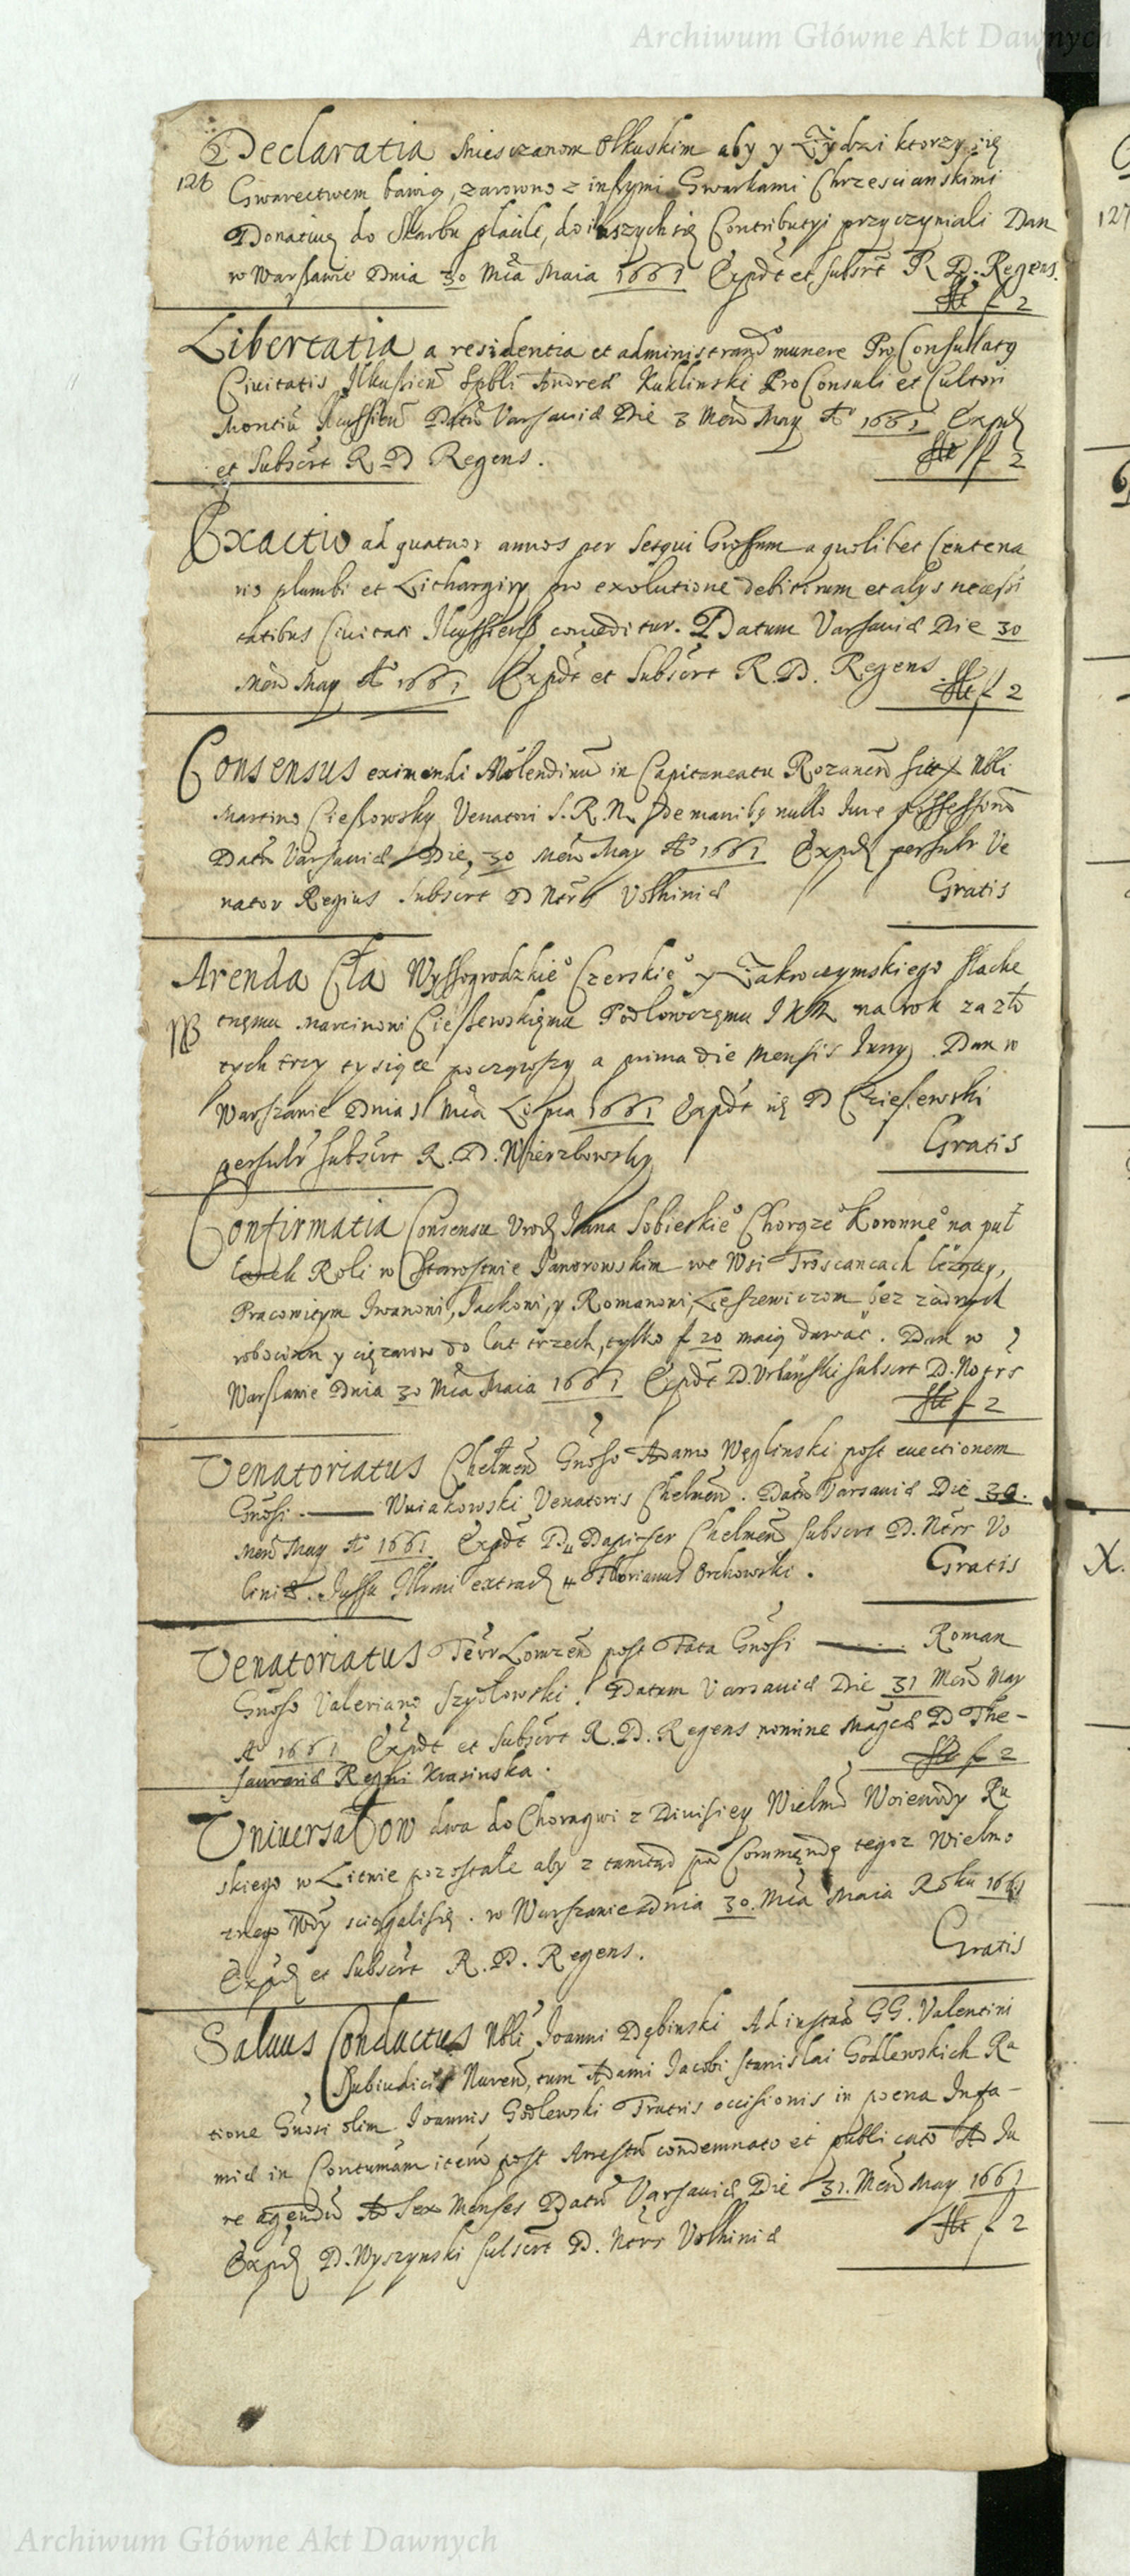 Archiwum Główne Akt Dawnych
Declaratia Mieszczanom Olkuskim aby y Żydzi ktorzy się
126 Gwarectwem bawią, zarowno z inszymi Gwarkami Chrzescianskimi
Donatiuę do Skarbu płacile, do inszych się Contributyi przyczyniali Dan
w Warszawie Dnia 30 Mca Maia 1661 Expdt et subscrt R D. Regens.
f 2
Libertatia a residentia et administrand munere ProConsulatq
Ciuitatis Ilkusien Spbli Andreæ Kuklinski ProConsuli et Cultori
Montiu Ilcussien Datu Varsauiæ Die 3 Men May Aº 1661 Expd
et Subscrt R D Regens.
f 2
Exactio ad quatuor annos per sesqui Grossum a quolibet Centena
rio plumbi et Lithargiry pro exolutione debitorum et alys necessi
tatibus Ciuitati Ilcussiens conceditur. Datum Varsauiæ Die 30
Men May Aº 1661 Expdt et Subscrt R. D. Regens
f 2
Consensus eximendi Molendinu in Capitaneatu Rozanen Nbli
Martino Cieszowsky Venatori S. R. M. de manibq nullo Iure possession
Datu Varsauiæ Die 30 Men May Aº 1661 Expd persubr Ve
nator Regius Subscrt D Ntrs Volhiniæ
Gratis
Arenda Cła Wyszogrodzkieº Czerskieº y Zakroczymskiego szlache
tnęmu Marcinowi Cieszewskięmu Podłowczęmu IKM na rok za zło
tych trzy tysiące począwszy a prima die Mensis Iuny. Dan w
Warszawie Dnia 1 Mca Lipca 1661 Expdt ię D Cieszewski
persubr subscrt R. D. Wierzbowsky
Gratis
Confirmatia Consensu Urod Iana Sobieskieº Chorążeº Koronneº na puł
Roli w Starostwie Iaworowskim we Wsi Troscancach leżący,
Pracowitym Iwanowi, Iackowi, y Romanowi, Leszewiczom bez żadnych
robocizn y cięzarow do lat trzech, tylko f 20 maią dawać. Dan w
Warszawie Dnia 30 Mca Maia 1661 Expdt D. Urbański subscrt D. Notrs
f 2
Venatoriatus Chełmen Gnoso Adamo Węglinski post euectionem
Gnosi. Wuiakowski Venatoris Chelmen. Datu Varsauiæ Die 30.
Men May Aº 1661 Expdt D Dapifer Chelmen subscrt D. Ntrs Vo
liniæ. Iussu Illmi extrad Florianus Orchowski.
Gratis
Venatoriatus Terr Lomzen post Fata Gnosi Roman
Gnoso Valeriano Szydłowski. Datum Varsauiæ Die 31 Men May
Aº 1661 Expdt et Subscrt R. D. Regens nomine Magcæ D The-
saurariæ Regni Krasinska.
f 2
Uniuersałow dwa do Chorągwi z Diuisiey Wielmo Woiewody Ru
skiego w Litwie pozostałe aby z tamtąd pod Commendę tegoz Wielmo
znego Wdy sciągalisię. w Warszawie Dnia 30. Mca Maia Roku 1661
Expd et Subscrt R. D. Regens.
Gratis
Saluus Conductus Nbli Ioanni Dębinski Ad instan GG. Valentini
Subiudicis Nuren, tum Adami Iacobi Stanislai Godlewskich Ra
tione Gnosi olim Ioannis Godlewski Fratris occisionis in poena Infa-
miæ in Contumam item post Arrestu condemnato et publicato Ad Iu
re agendu Ad Sex Menses Datu Varsauiæ Die 31. Men May 1661
Expd D. Wyszynski subscrt D. Ntrs Volhiniæ
f 2
127
X.
Archiwum Główne Akt Dawnych